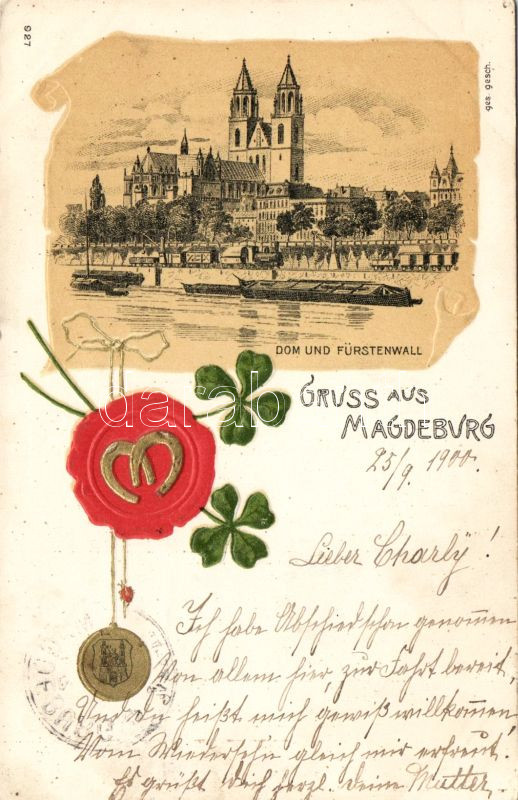 927
ges. gesch.
DOM UND FÜRSTENWALL
GRUSS AUS
MAGDEBURG
25/9. 1900.
Lieber Charly!
Ich habe Abschied schon genommen
Von allem hier, zur Fahrt bereit,
Und du heißt mich gewiß willkommen
Vom Wiedersehn gleich mir erfreut.
Es grüßt Dich herzl. Deine Mutter.
darabanth